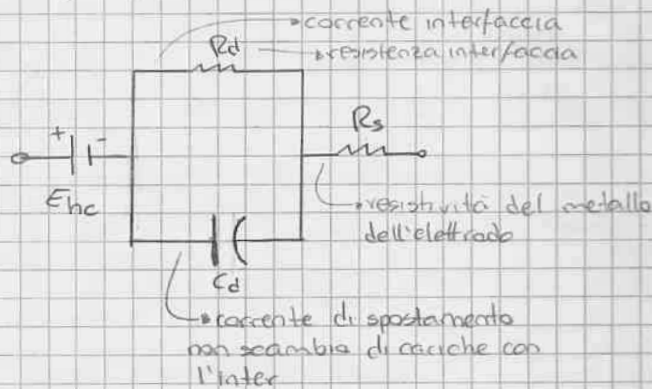 corrente interfaccia
Rd
resistenza interfaccia
Rs
+ -
Ehc
resistività del metallo
dell'elettrodo
Cd
corrente di spostamento
non scambio di cariche con
l'inter